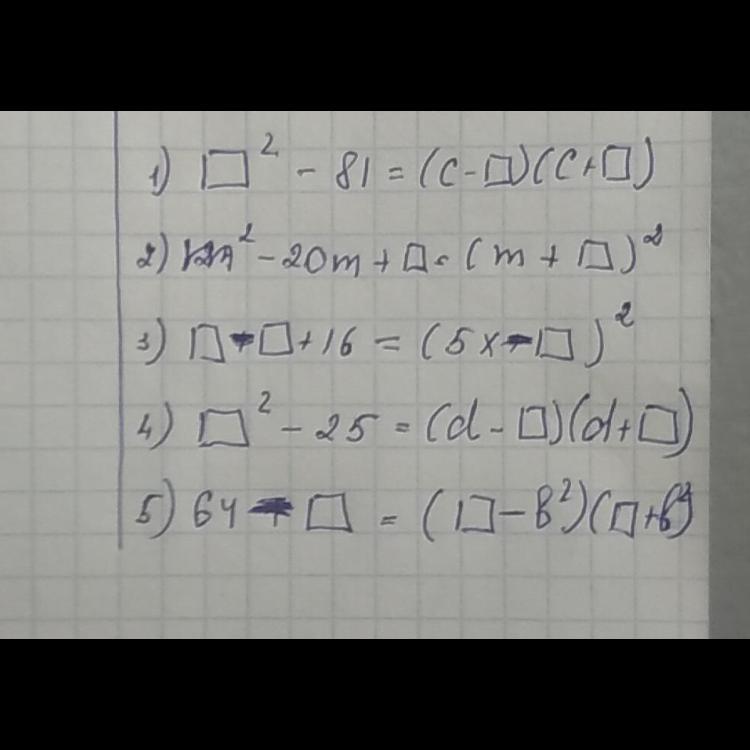 1) □² - 81 = (c - □)(c + □)
2) m² - 20m + □ = (m + □)²
3) □ - □ + 16 = (5x - □)²
4) □² - 25 = (d - □)(d + □)
5) 64 - □ = (□ - b²)(□ + b²)